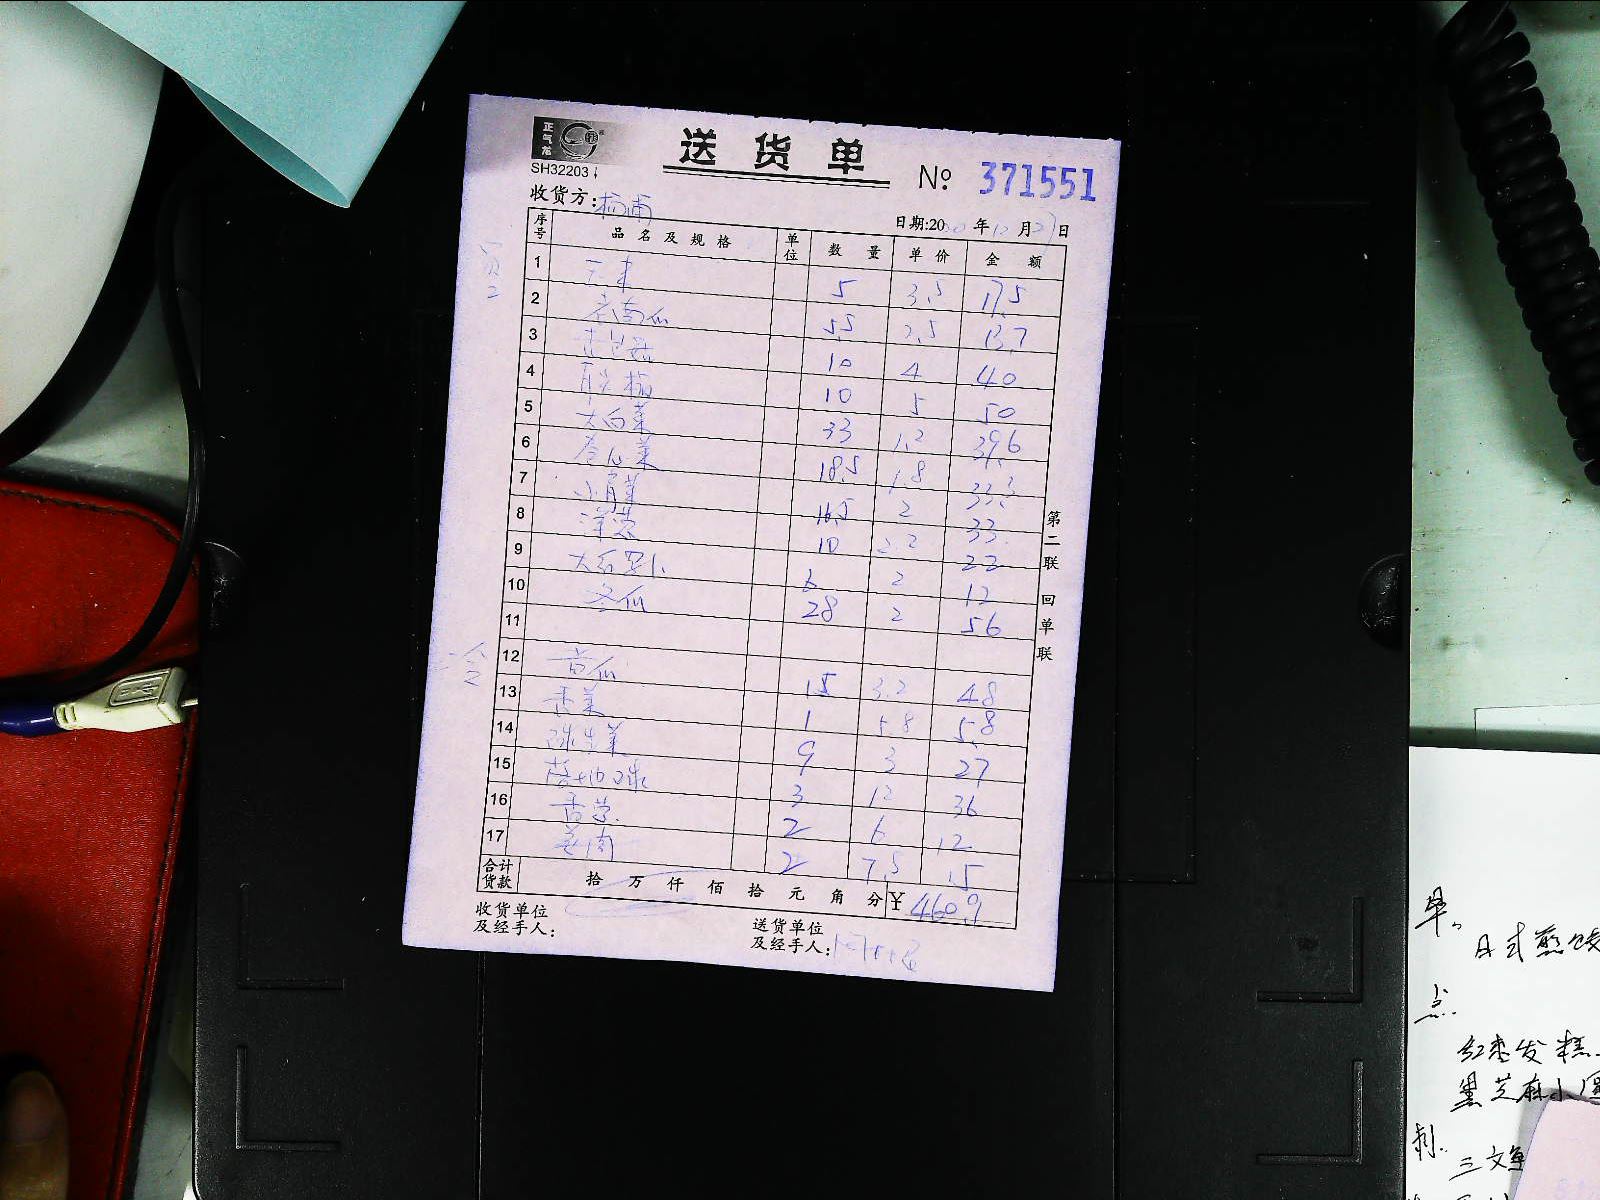 正气龙
SH32203
送货单
No 371551
收货方:
日期:20 年12月 日
序号 品名及规格 单位 数量 单价 金额
1 5 3.5 17.5
2 老南瓜 5.5 2.5 13.7
3 10 4 40
4 10 5 50
5 大白菜 33 1.2 39.6
6 卷心菜 18.5 1.8 33.3
7 小青菜 16.5 2 33
8 洋葱 10 2.2 22
9 大白萝卜 6 2 12
10 冬瓜 28 2 56
11
12 黄瓜 15 3.2 48
13 香菜 1 5.8 5.8
14 球生菜 9 3 27
15 3 12 36
16 香葱 2 6 12
17 姜肉 2 7.5 15
合计货款 拾万仟佰拾元角分 ¥460.9
收货单位及经手人:
送货单位及经手人:
第二联 回单联
早。
日式煎饺
点.
红枣发糕
黑芝麻小
三文鱼